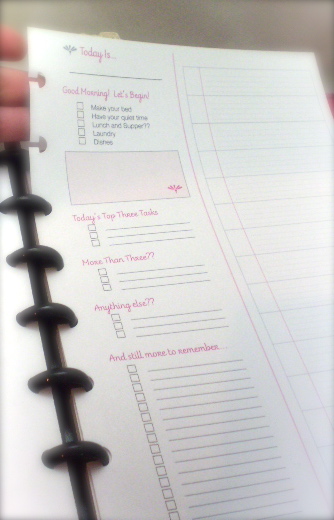 Today Is...
Good Morning! Let's Begin!
Make your bed
Have your quiet time
Lunch and Supper??
Laundry
Dishes
Today's Top Three Tasks
More Than Three??
Anything else??
And still more to remember...